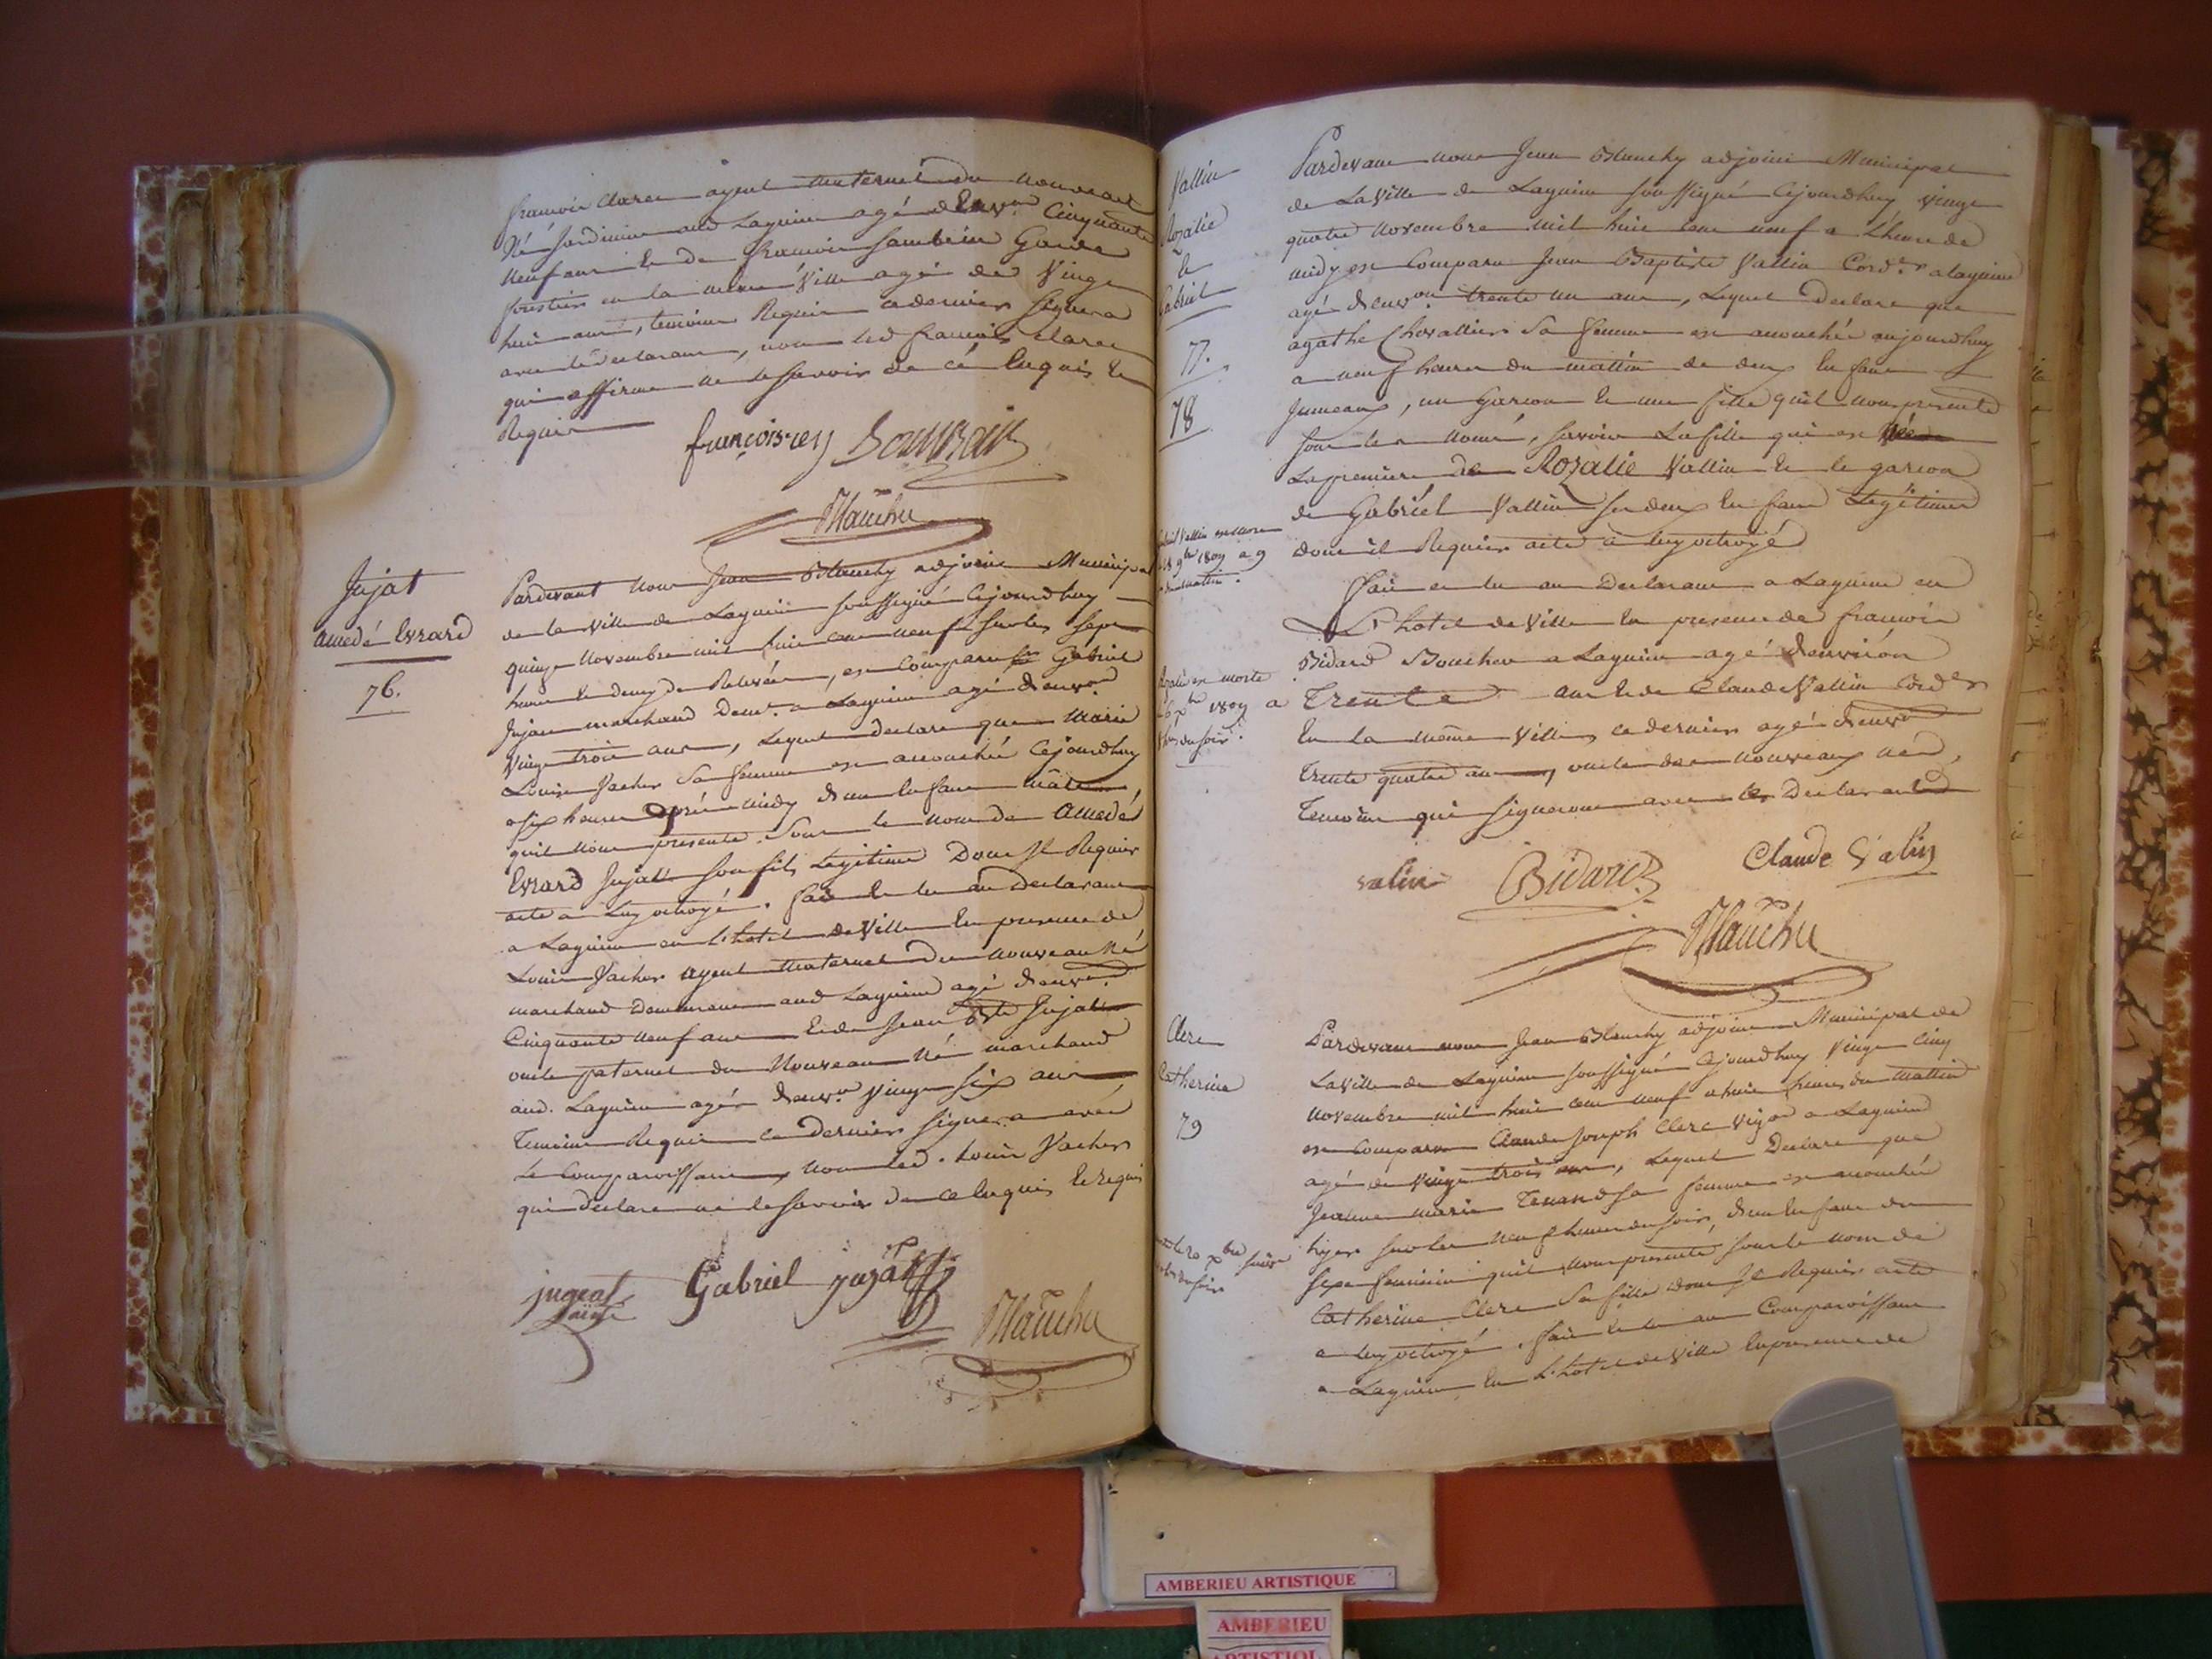 françois clare ayeul maternel du nouveau
Né jardinier aud Lagnieu agé denv.on Cinquante
Neuf ans & de françois Sambein Garde
forestier en la même Ville agé de Vingt
huit ans, temoins Requis ce dernier signera
avec le declarant, non led françois clare
qui affirme ne le savoir de cé Enquis &
Requis
françois rey
Blanchy
Jujat
Amedé Evrard
76.
Pardevant Nous Jean Blanchy adjoint Municipal
de la ville de Lagnieu soussigné Cejourdhuy
quinze Novembre mil huit cent neuf sur les sept
heures & demy de Relevée, est Comparu Gabriel
Jujat marchand demt. a Lagnieu agé denvon
Vingt trois ans, Lequel declare que Marie
Louise Vacher Sa femme est accouchée Cejourdhuy
a six heures après midy dun Enfant mâle
quil Nous presente Sous le nom de Amedé
Evrard Jujat son fils Legitime Dont Il Requier
acte a Luy octroyé. fait & lu au Declarant
a Lagnieu en l'hotel de Ville En presence de
Louis Vacher ayeul maternel du nouveau Né
marchand demeurant aud Lagnieu agé denvon.
Cinquante neuf ans & de Jean Bte Jujat
oncle paternel du Nouveau Né marchand
aud. Lagnieu agé denvon Vingt six ans
Temoins Requis ce dernier signera avec
Le Comparoissant, Non led. Louis Vacher
qui declare ne le savoir de ce Enquis & requis
jujeat
Gabriel jujat
Blanchy
Vallin
Rozalie
&
Gabriel
77.
78
Pardevant nous Jean Blanchy adjoint Municipal
de La Ville de Lagnieu soussigné Cejourdhuy vingt
quatre Novembre mil huit cent neuf a L'heure de
midy est Comparu Jean Baptiste Vallin Cord.er a Lagnieu
agé denvon trente un ans, Lequel Declare que
agathe Chevallier Sa femme est accouchée aujourdhuy
a neuf heures du matin de deux Enfans
Jumeaux, un Garcon & une fille quil nous presente
sous les noms, savoir La fille qui est Née
La premiere de Rozalie Vallin & le garcon
de Gabriél Vallin ses deux Enfans Legitimes
dont il Requier acte a luy octroyé
Gabriel Vallin est mort
le 28 9bre 1809 a 9
du matin.
fait & lu au Declarant a Lagnieu en
L'hotel de Ville En presence de francois
Bidard Boucher a Lagnieu agé denvirón
Rozalie est morte
xbre 1809 a
du soir.
Trente ans & de Claude Vallin Corder
En la même Ville, ce dernier agé denvon
trente quatre ans, oncle des nouveaux nés,
Temoins qui signeront avec le Declarant
valin
Bidard
Claude Valin
Blanchy
Clerc
Catherine
79
Pardevant nous Jean Blanchy adjoint Municipal de
La Ville de Lagnieu soussigné Cejourdhuy Vingt Cinq
novembre mil huit cent neuf a huit heures du Mattin
est Comparu Claude Joseph Clerc Vigon a Lagnieu
agé de vingt trois ans, Lequel Declare que
Jeanne marie Tenand Sa femme est accouchée
hyer sur les neuf heures du soir, dun Enfant du
sexe feminin quil nous presente sous le nom de
Catherine Clerc Sa fille dont Il Requier acte
a luy octroyé. fait & lu au Comparoissant
a Lagnieu En L'hotel de Ville En presence de
AMBERIEU ARTISTIQUE
AMBERIEU